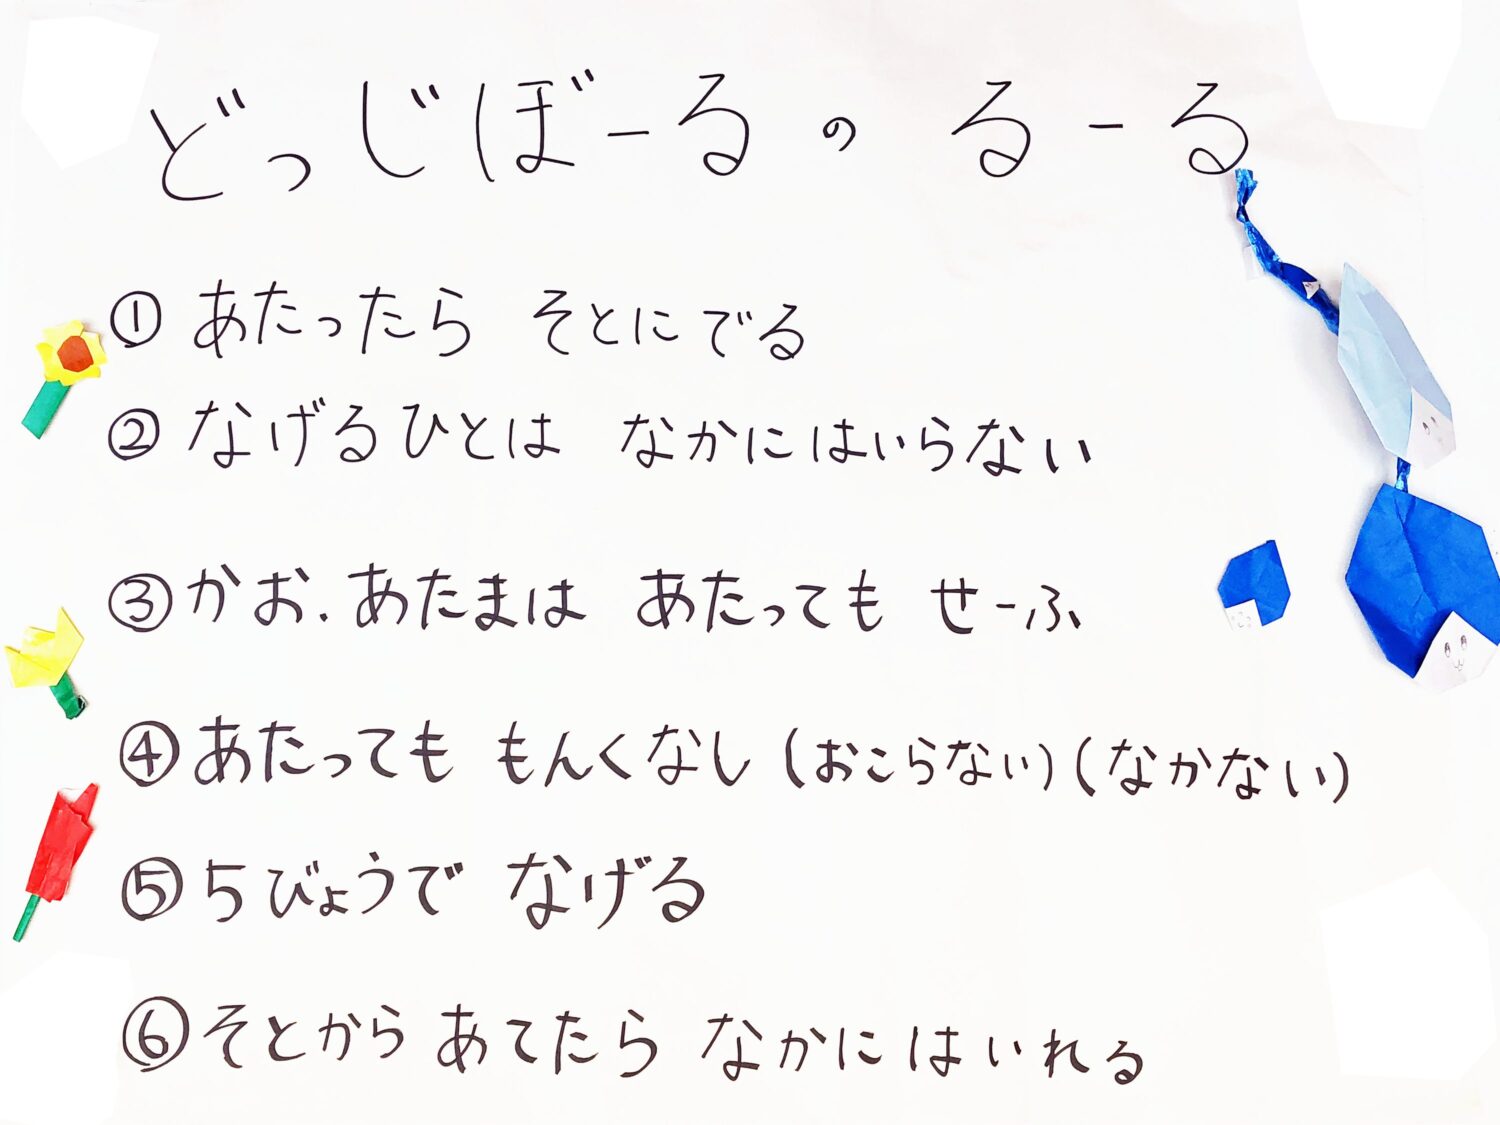 どっじぼーるの るーる
① あたったら そとにでる
② なげるひとは なかにはいらない
③ かお.あたまは あたっても せーふ
④ あたっても もんくなし (おこらない) (なかない)
⑤ 5びょうで なげる
⑥ そとから あてたら なかに はいれる